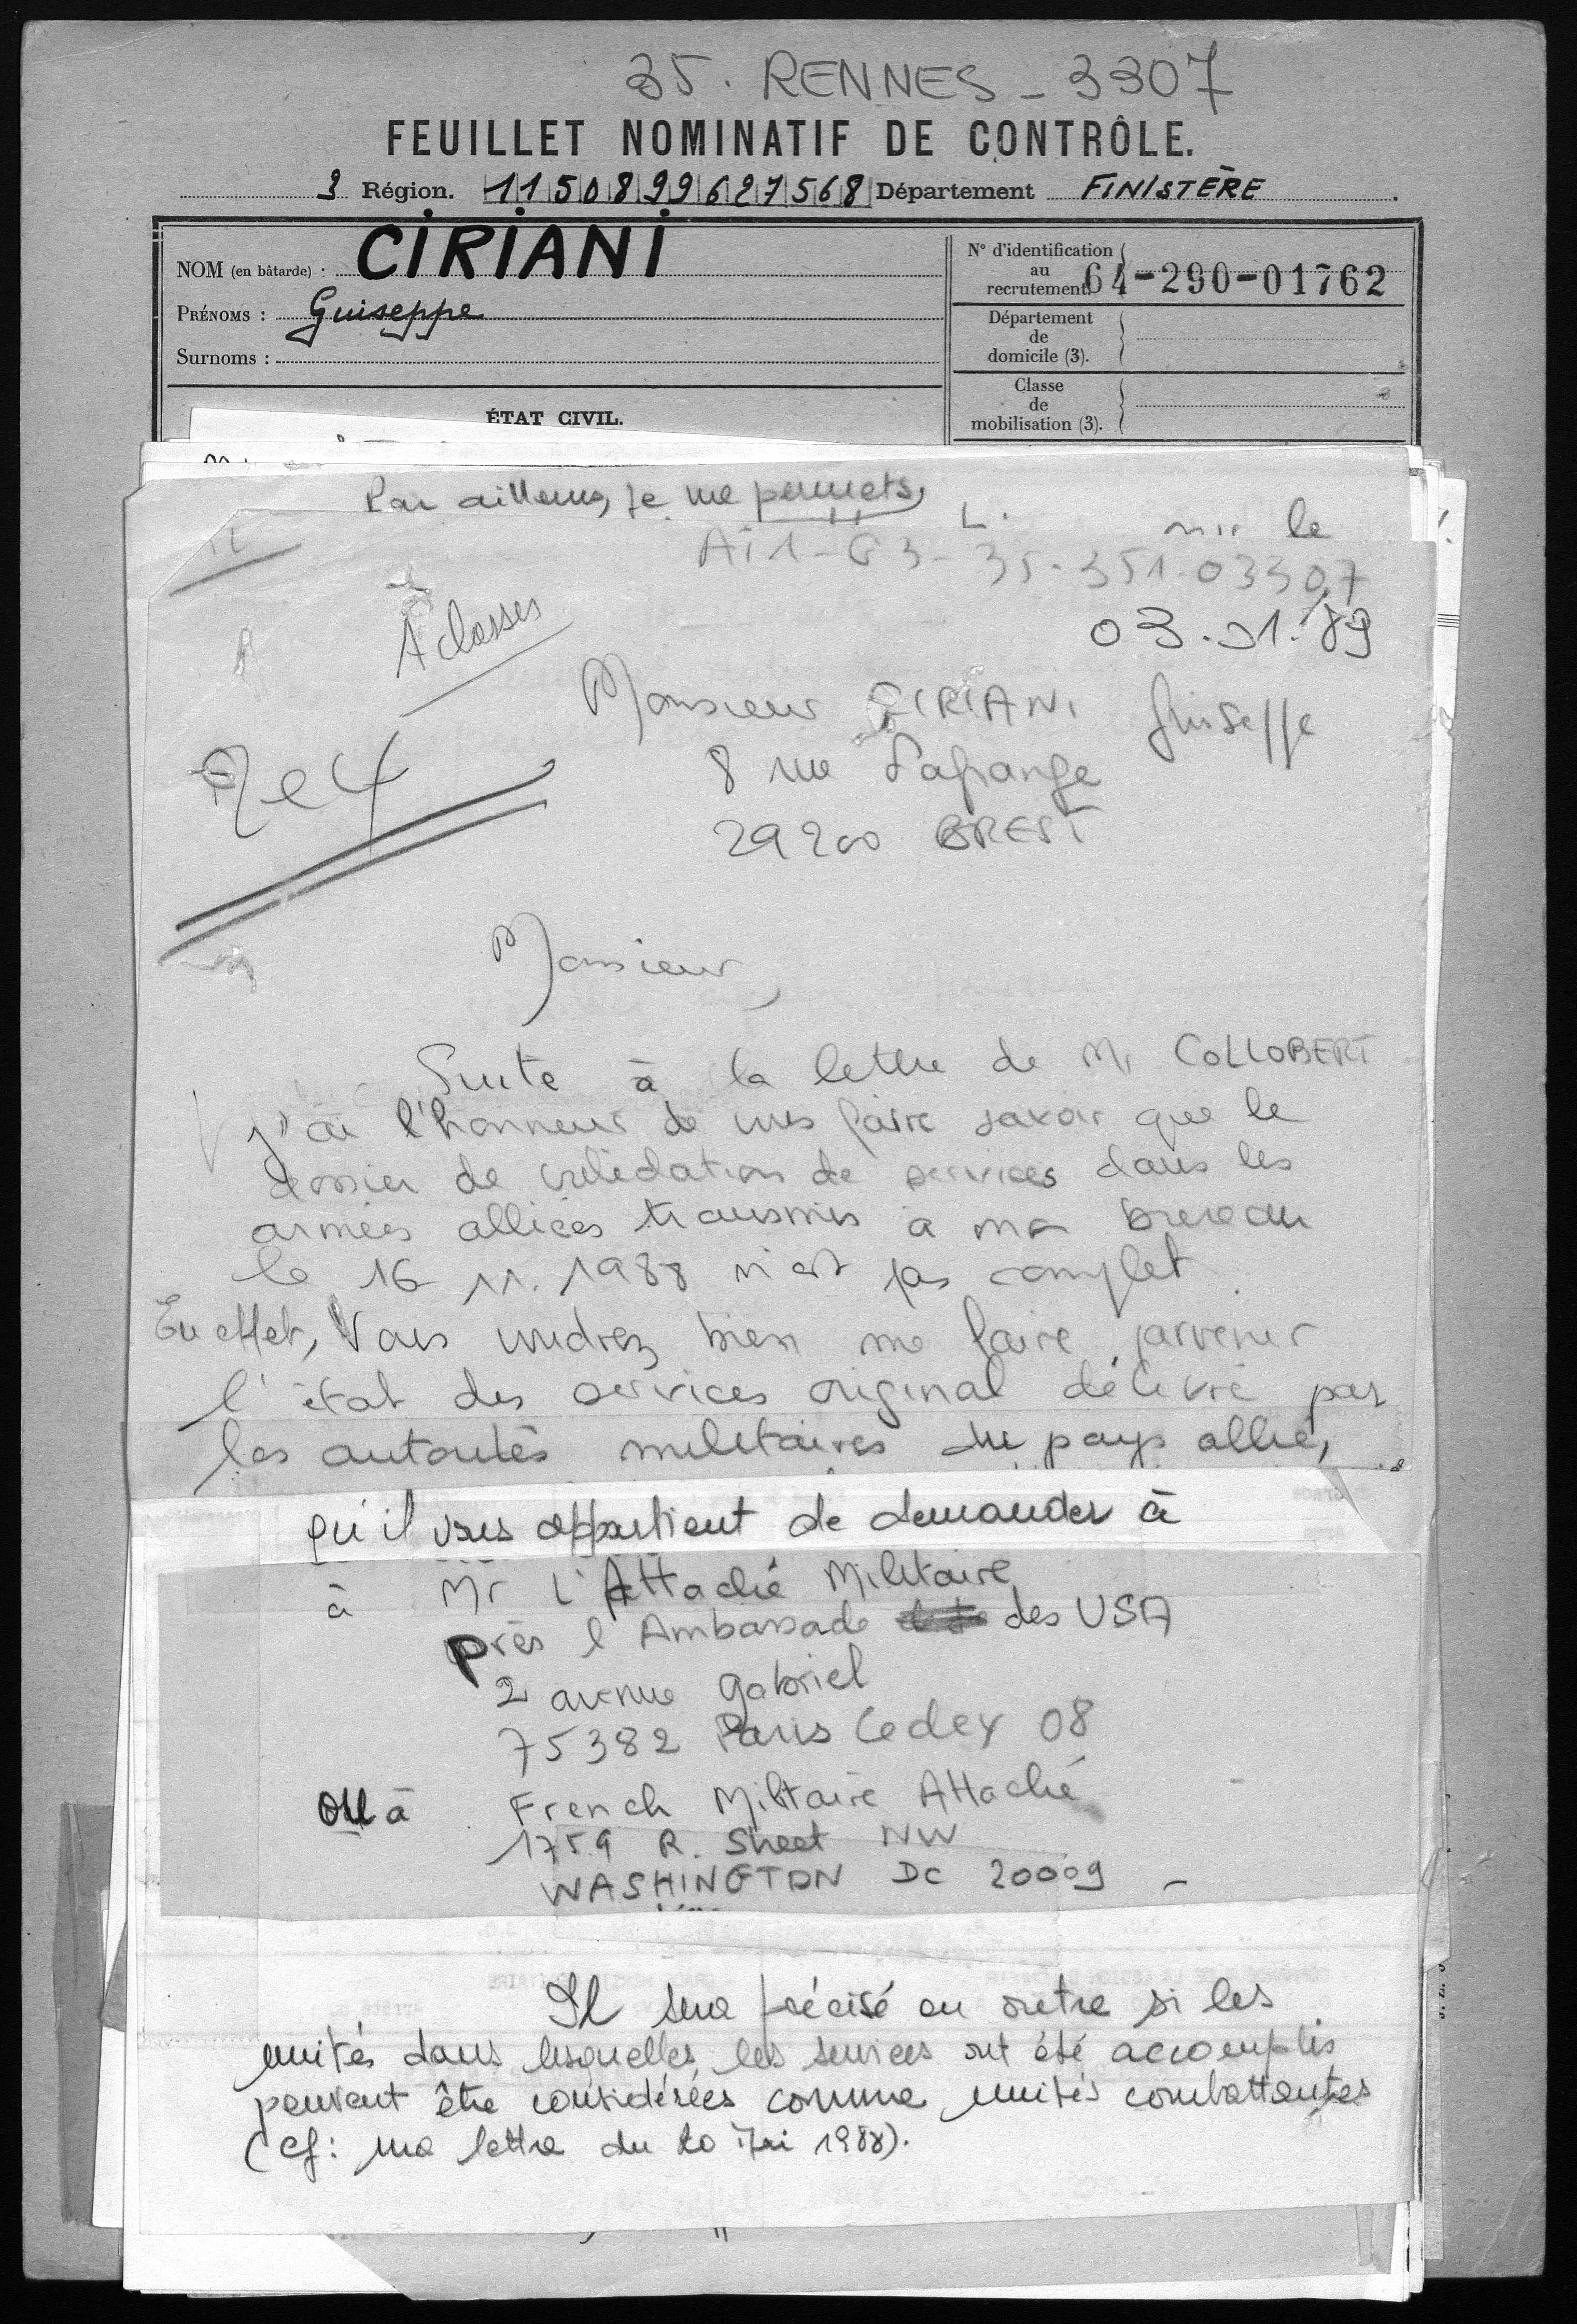 35. RENNES - 3307
FEUILLET NOMINATIF DE CONTRÔLE.
3 Région. 1150899627568 Département FINISTÈRE
NOM (en bâtarde) : CIRIANI
PRÉNOMS : Guiseppe
Surnoms :
N° d'identification au recrutement 64-290-01762
Département de domicile (3).
Classe de mobilisation (3).
ÉTAT CIVIL.
Par ailleurs, je me permets,
le
AI1-G3-35-351-03307
03.01.89
A classer
Monsieur CIRIANI Guiseppe
8 rue Lagrange
29200 BREST
Monsieur,
Suite à la lettre de Mr COLLOBERT
j'ai l'honneur de vous faire savoir que le
dossier de validation de services dans les
armées alliées transmis à mon bureau
le 16 11. 1988 n'est pas complet.
En effet, Vous voudrez bien me faire parvenir
l'état des services original délivré par
les autorités militaires du pays allié,
qu'il vous appartient de demander à
à Mr L'Attaché Militaire
près l'Ambassade des USA
2 avenue Gabriel
75382 Paris Cedex 08
ou à French Militaire Attaché
1759 R. Street NW
WASHINGTON DC 20009 -
Il sera précisé en outre si les
unités dans lesquelles les services ont été accomplis
peuvent être considérées comme unités combattantes
(cf: ma lettre du 20 Mai 1988).